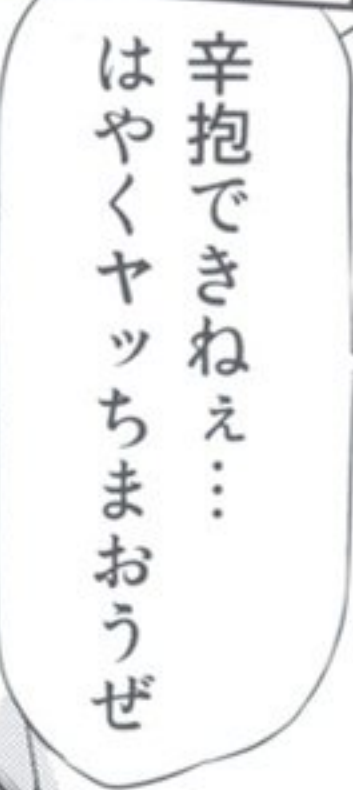 辛抱できねぇ…
はやくヤッちまおうぜ